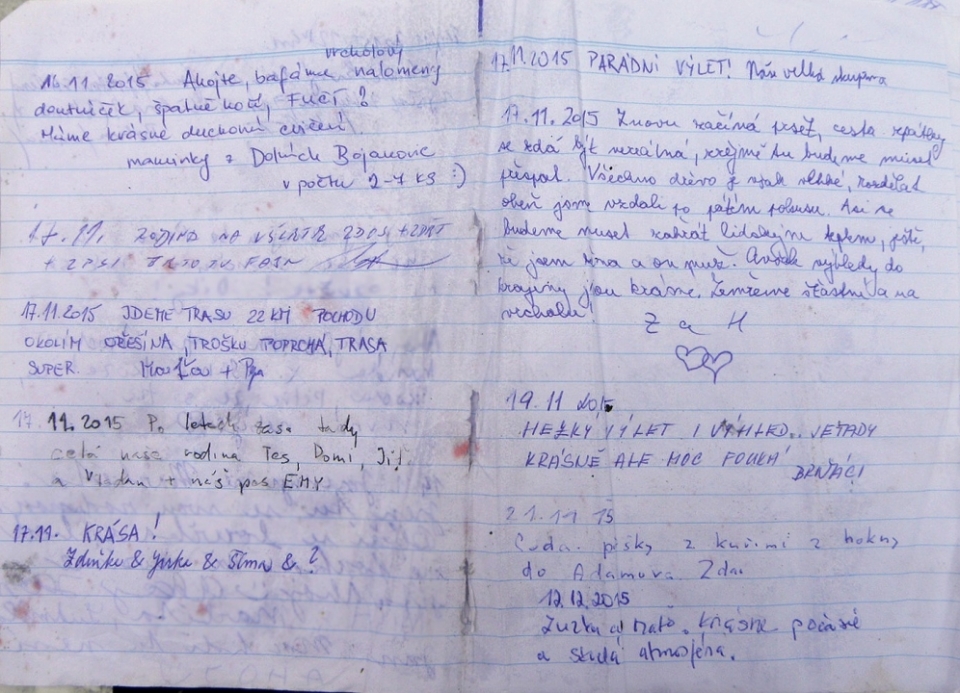 vrcholový
16.11 2015 Ahojte, bafáme nalomený
doutníček, špatně hoří, FUČÍ?
Máme krásné duchovní cvičení.
maminky z Dolních Bojanovic
v počtu 2-4 ks :)
17.11.
17.11.2015 JDEME TRASU 22 KM POCHODU
OKOLÍM OŘEŠÍNA, TROŠKU POPRCHÁ, TRASA
SUPER.
17.11.2015 Po letech zase tady
celá naše rodina Tes, Domi, Jiř.
a + náš pes EMY
17.11. KRÁSA!
Zdeňka & Jirka & Šíma & ?
17.11.2015 PARÁDNÍ VÝLET! Naše velká skupina
17.11.2015 Znovu začíná pršet, cesta zpátky
se zdá být nereálná, zřejmě tu budeme muset
přespat. Všechno dřevo je však vlhké, rozdělat
oheň jsme vzdali po pátém pokusu. Asi se
budeme muset zahřát lidským teplem, ještě,
že jsem žena a on muž. Avšak výhledy do
krajiny jsou krásné. Zemřeme šťastní a na
vrcholu!
Z a H
19.11 2015
HEZKÝ VÝLET I VÝHLED. VŠTADY
KRÁSNĚ ALE MOC FOUKÁ
BRŇÁCI
21.11 15
pěšky z z
do Adamova. Zdar
12.12.2015
Zuzka a Maťo. Krásne počasie
a skvelá atmosféra.